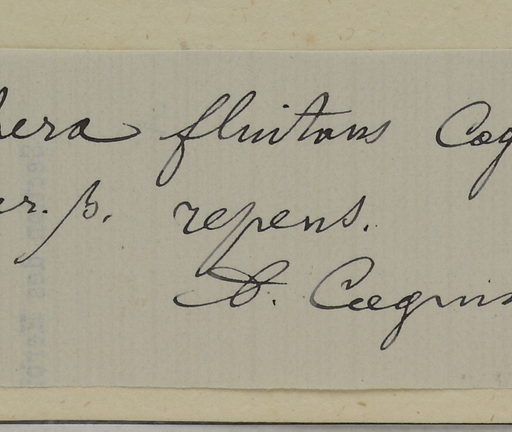 hera fluitans Cog
ar. β. repens.
A. Cogni